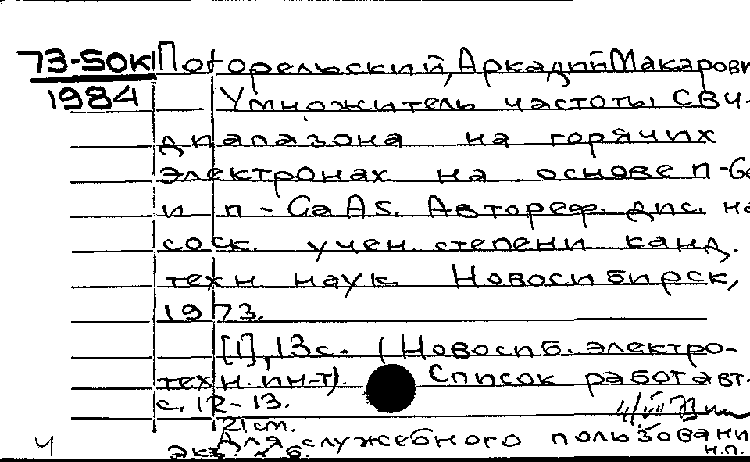 73-SOK Погорельский, Аркадий Макарови
1984 Умножитель частоты СВЧ-
диапазона на горячих
электронах на основе п-Ge
и п-GaAs. Автореф. дис. на
соск. учен. степени канд.
техн. наук. Новосибирск,
1973.
[1], 13 с. (Новосиб. электро-
техн. ин-т). Список работ авт.
с. 12-13.
21 см.
Для служебного пользовани
экз. 6.
н.п.
4